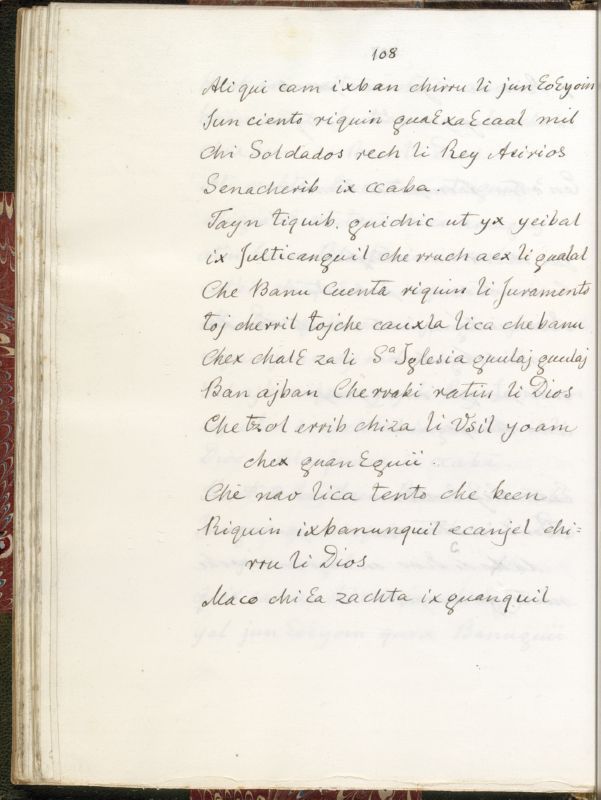 108
Aliqui cam ixban chirru li jun Eoεyoin
Jun ciento riquin guaεxaεcaal mil
chi Soldados rech li Rey Asirios
Senacherib ix ccaba.
Tayn tiquib. guichic ut yx yeibal
ix Julticanguil che rruch aex li gualal
Che Banu Cuenta riquin li Juramento
toj cherril tojche cauxla lica chebanu
Chex chalε za li Sᵃ Iglesia guulaj guulaj
Ban ajban Che rraki ratin li Dios
Che tzol errib chiza li Vsil yoam
chex guanεguii.
Che nav lica tento che been
Riquin ixbanunquil ecanjel chi=
rru li Dios
Maco chiεa zachta ixguanquil